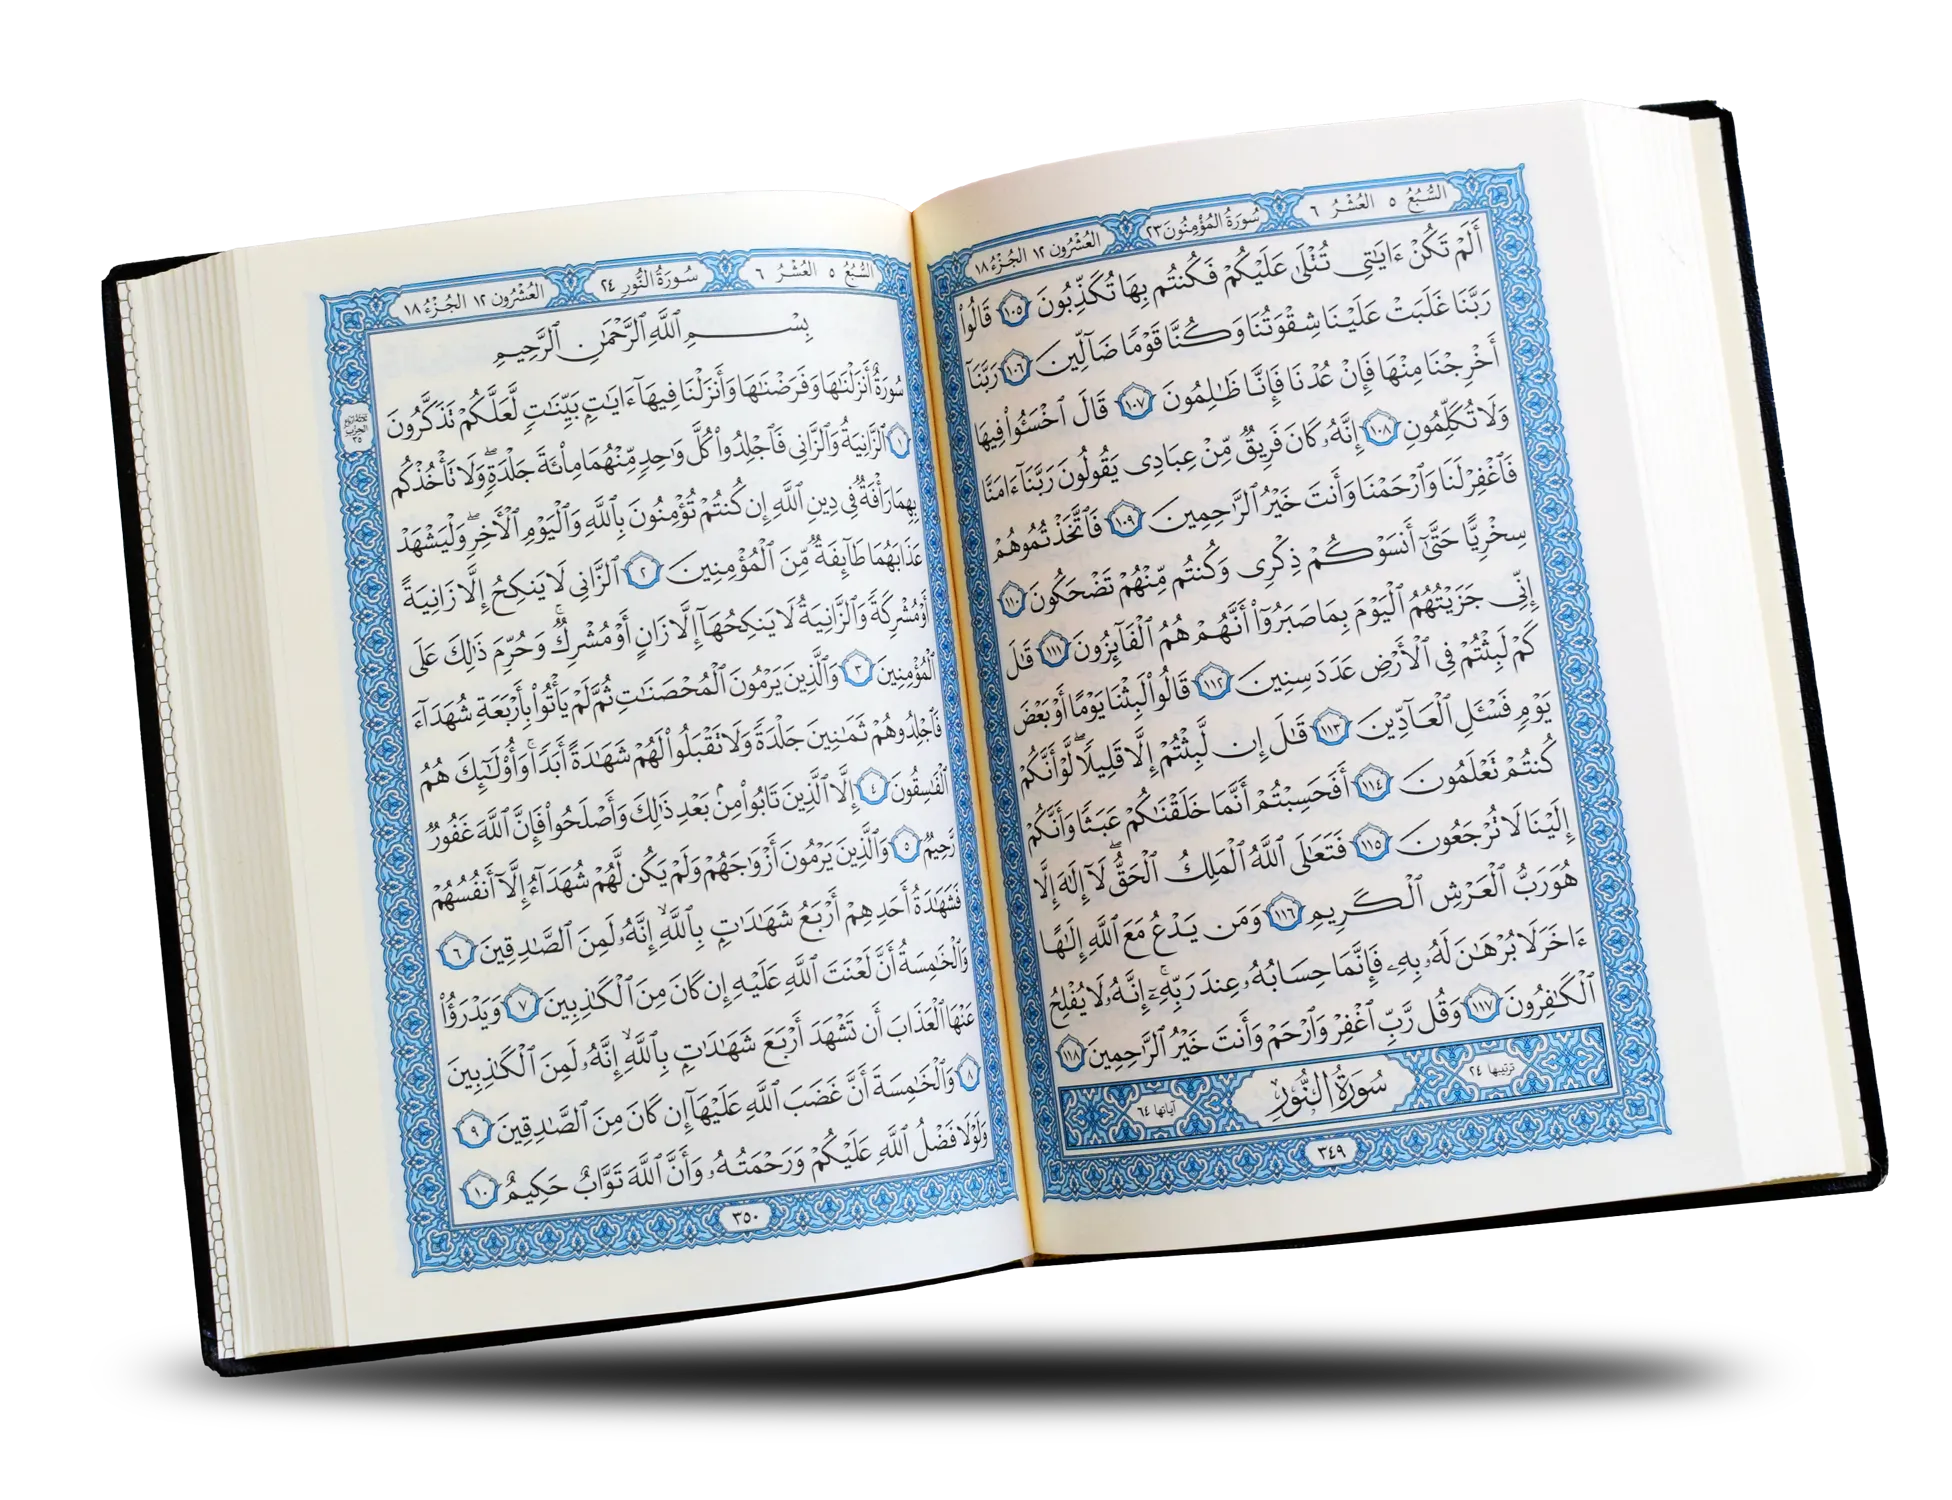 السُّبُعُ ٥ العُشْرُ ٦ سُورَةُ المُؤْمِنُونَ ٢٣ العُشْرُون ١٢ الجُزْءُ ١٨
أَلَمْ تَكُنْ ءَايَٰتِى تُتْلَىٰ عَلَيْكُمْ فَكُنتُم بِهَا تُكَذِّبُونَ ١٠٥ قَالُوا۟
رَبَّنَا غَلَبَتْ عَلَيْنَا شِقْوَتُنَا وَكُنَّا قَوْمًا ضَآلِّينَ ١٠٦ رَبَّنَآ
أَخْرِجْنَا مِنْهَا فَإِنْ عُدْنَا فَإِنَّا ظَٰلِمُونَ ١٠٧ قَالَ ٱخْسَـُٔوا۟ فِيهَا
وَلَا تُكَلِّمُونِ ١٠٨ إِنَّهُۥ كَانَ فَرِيقٌ مِّنْ عِبَادِى يَقُولُونَ رَبَّنَآ ءَامَنَّا
فَٱغْفِرْ لَنَا وَٱرْحَمْنَا وَأَنتَ خَيْرُ ٱلرَّٰحِمِينَ ١٠٩ فَٱتَّخَذْتُمُوهُمْ
سِخْرِيًّا حَتَّىٰٓ أَنسَوْكُمْ ذِكْرِى وَكُنتُم مِّنْهُمْ تَضْحَكُونَ ١١٠
إِنِّى جَزَيْتُهُمُ ٱلْيَوْمَ بِمَا صَبَرُوٓا۟ أَنَّهُمْ هُمُ ٱلْفَآئِزُونَ ١١١ قَٰلَ
كَمْ لَبِثْتُمْ فِى ٱلْأَرْضِ عَدَدَ سِنِينَ ١١٢ قَالُوا۟ لَبِثْنَا يَوْمًا أَوْ بَعْضَ
يَوْمٍ فَسْـَٔلِ ٱلْعَآدِّينَ ١١٣ قَٰلَ إِن لَّبِثْتُمْ إِلَّا قَلِيلًا ۖ لَّوْ أَنَّكُمْ
كُنتُمْ تَعْلَمُونَ ١١٤ أَفَحَسِبْتُمْ أَنَّمَا خَلَقْنَٰكُمْ عَبَثًا وَأَنَّكُمْ
إِلَيْنَا لَا تُرْجَعُونَ ١١٥ فَتَعَٰلَى ٱللَّهُ ٱلْمَلِكُ ٱلْحَقُّ ۖ لَآ إِلَٰهَ إِلَّا
هُوَ رَبُّ ٱلْعَرْشِ ٱلْكَرِيمِ ١١٦ وَمَن يَدْعُ مَعَ ٱللَّهِ إِلَٰهًا
ءَاخَرَ لَا بُرْهَٰنَ لَهُۥ بِهِۦ فَإِنَّمَا حِسَابُهُۥ عِندَ رَبِّهِۦٓ ۚ إِنَّهُۥ لَا يُفْلِحُ
ٱلْكَٰفِرُونَ ١١٧ وَقُل رَّبِّ ٱغْفِرْ وَٱرْحَمْ وَأَنتَ خَيْرُ ٱلرَّٰحِمِينَ ١١٨
ترتيبها ٢٤ سُورَةُ النُّورِ آياتها ٦٤
٣٤٩
السُّبُعُ ٥ العُشْرُ ٦ سُورَةُ النُّورِ ٢٤ العُشْرُون ١٢ الجُزْءُ ١٨
بِسْمِ ٱللَّهِ ٱلرَّحْمَٰنِ ٱلرَّحِيمِ
سُورَةٌ أَنزَلْنَٰهَا وَفَرَضْنَٰهَا وَأَنزَلْنَا فِيهَآ ءَايَٰتٍۭ بَيِّنَٰتٍ لَّعَلَّكُمْ تَذَكَّرُونَ
١ ٱلزَّانِيَةُ وَٱلزَّانِى فَٱجْلِدُوا۟ كُلَّ وَٰحِدٍ مِّنْهُمَا مِا۟ئَةَ جَلْدَةٍ ۖ وَلَا تَأْخُذْكُم
بِهِمَا رَأْفَةٌ فِى دِينِ ٱللَّهِ إِن كُنتُمْ تُؤْمِنُونَ بِٱللَّهِ وَٱلْيَوْمِ ٱلْأَخِرِ ۖ وَلْيَشْهَدْ
عَذَابَهُمَا طَآئِفَةٌ مِّنَ ٱلْمُؤْمِنِينَ ٢ ٱلزَّانِى لَا يَنكِحُ إِلَّا زَانِيَةً
أَوْ مُشْرِكَةً وَٱلزَّانِيَةُ لَا يَنكِحُهَآ إِلَّا زَانٍ أَوْ مُشْرِكٌ ۚ وَحُرِّمَ ذَٰلِكَ عَلَى
ٱلْمُؤْمِنِينَ ٣ وَٱلَّذِينَ يَرْمُونَ ٱلْمُحْصَنَٰتِ ثُمَّ لَمْ يَأْتُوا۟ بِأَرْبَعَةِ شُهَدَآءَ
فَٱجْلِدُوهُمْ ثَمَٰنِينَ جَلْدَةً وَلَا تَقْبَلُوا۟ لَهُمْ شَهَٰدَةً أَبَدًا ۚ وَأُو۟لَٰٓئِكَ هُمُ
ٱلْفَٰسِقُونَ ٤ إِلَّا ٱلَّذِينَ تَابُوا۟ مِنۢ بَعْدِ ذَٰلِكَ وَأَصْلَحُوا۟ فَإِنَّ ٱللَّهَ غَفُورٌ
رَّحِيمٌ ٥ وَٱلَّذِينَ يَرْمُونَ أَزْوَٰجَهُمْ وَلَمْ يَكُن لَّهُمْ شُهَدَآءُ إِلَّآ أَنفُسُهُمْ
فَشَهَٰدَةُ أَحَدِهِمْ أَرْبَعُ شَهَٰدَٰتٍۭ بِٱللَّهِ ۙ إِنَّهُۥ لَمِنَ ٱلصَّٰدِقِينَ ٦
وَٱلْخَٰمِسَةُ أَنَّ لَعْنَتَ ٱللَّهِ عَلَيْهِ إِن كَانَ مِنَ ٱلْكَٰذِبِينَ ٧ وَيَدْرَؤُا۟
عَنْهَا ٱلْعَذَابَ أَن تَشْهَدَ أَرْبَعَ شَهَٰدَٰتٍۭ بِٱللَّهِ ۙ إِنَّهُۥ لَمِنَ ٱلْكَٰذِبِينَ
٨ وَٱلْخَٰمِسَةَ أَنَّ غَضَبَ ٱللَّهِ عَلَيْهَآ إِن كَانَ مِنَ ٱلصَّٰدِقِينَ ٩
وَلَوْلَا فَضْلُ ٱللَّهِ عَلَيْكُمْ وَرَحْمَتُهُۥ وَأَنَّ ٱللَّهَ تَوَّابٌ حَكِيمٌ ١٠
٣٥٠